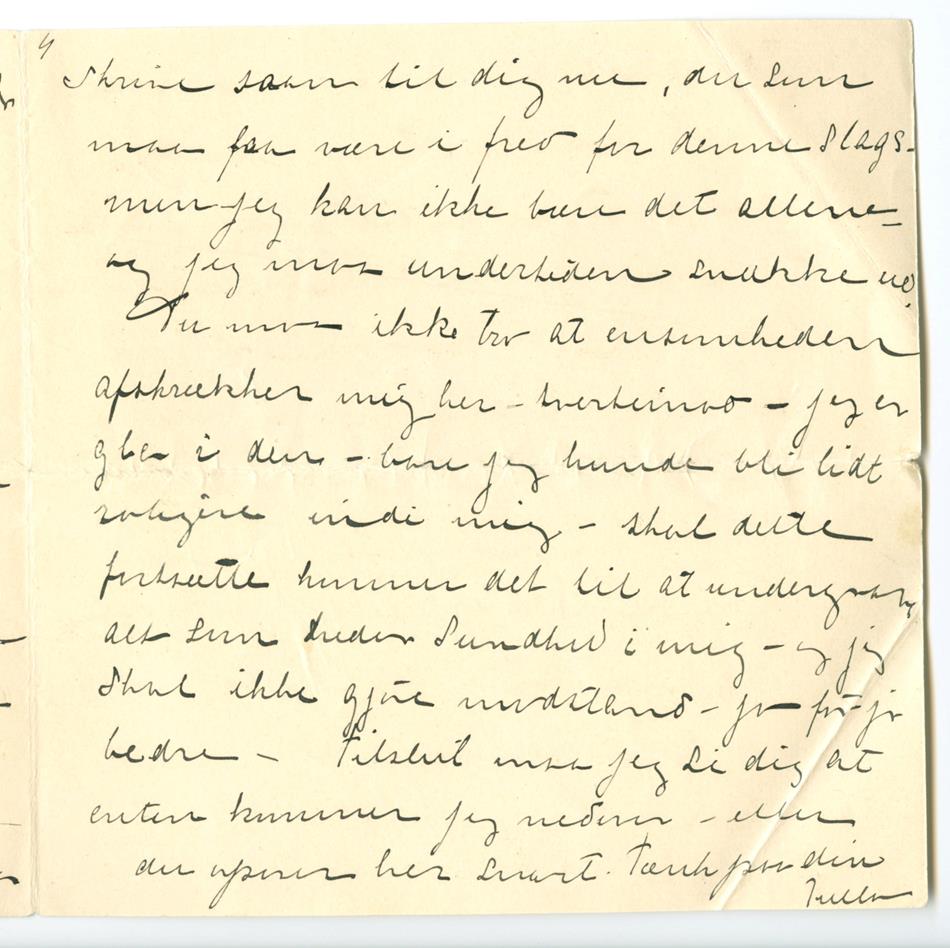 4
Skrive saan til dig nu, du som
maa faa være i fred for denne Slags-
men jeg kan ikke bære det allene=
og jeg maa undertiden snakke ud.
Du maa ikke tro at ensomheden
afskrækker mig her - tvertimod - jeg er
gla i den - bare jeg kunde bli lidt
roligere indi mig - skal dette
fortsætte kommer det til at undergrave
alt som heder Sundhed i mig - og jeg
skal ikke gjøre modstand - jo før jo
bedre - Tilslut maa jeg si dig at
enten kommer jeg nedover - eller
du opover her snart. Tænk paa din
Tulla